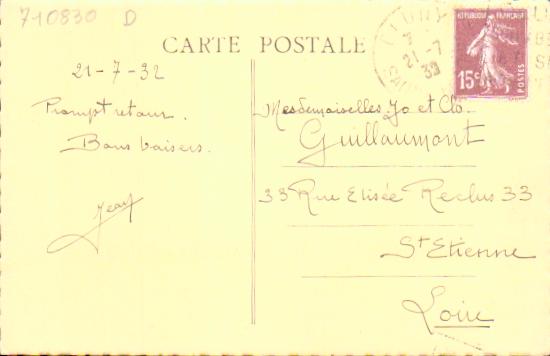 710830 D
CARTE POSTALE
RÉPUBLIQUE FRANÇAISE
15c
POSTES
21-7
32
21-7-32
Prompt retour.
Bons baisers.
Jean
Mesdemoiselles Jo et Clo.
Guillaumont
33 Rue Elisée Reclus 33
St Etienne
Loire